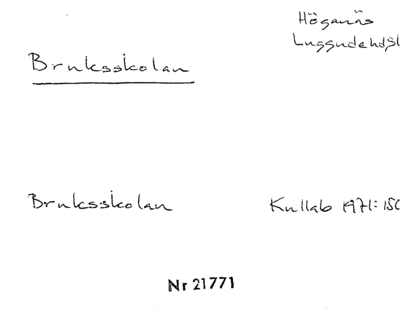 Höganäs
Luggude hd, Sk
Bruksskolan
Bruksskolan
Kullab 1971: 150
Nr 21771